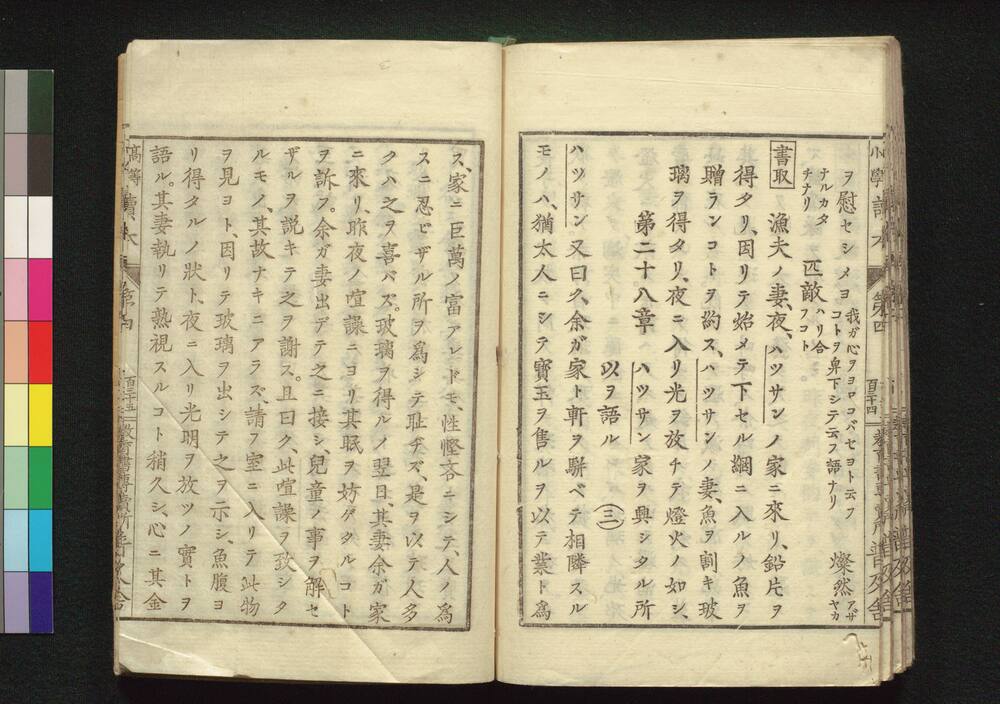 小學讀本 第四 百三十四 普及舍
ヲ慰セシメヨ 我ガ心ヲヨロコバセヨト云フコトヲ卑下シテ云フ語ナリ 燦然 アザヤカ
ナルカタチナリ 匹敵 ハリ合フコト
書取 漁夫ノ妻、夜、ハツサンノ家ニ來リ、鉛片ヲ
得タリ、因リテ始メテ下セル網ニ入ルノ魚ヲ
贈ランコトヲ約ス、ハツサンノ妻、魚ヲ割キ玻
璃ヲ得タリ、夜ニ入リ光ヲ放チテ燈火ノ如シ、
第二十八章 ハツサン、家ヲ興シタル所
以ヲ語ル 三
ハツサン又曰ク、余ガ家ト軒ヲ駢ベテ相隣スル
モノハ、猶太人ニシテ寶玉ヲ售ルヲ以テ業ト爲
ス、家ニ巨萬ノ富アレドモ、性慳吝ニシテ、人ノ爲
スニ忍ビザル所ヲ爲シテ耻ヂズ、是ヲ以テ人多
クハ之ヲ喜バズ。玻璃ヲ得ルノ翌日、其妻余ガ家
ニ來リ、昨夜ノ喧譟ニヨリ其眠ヲ妨ゲタルコト
ヲ訴フ。余ガ妻出デテ之ニ接シ、兒童ノ事ヲ解セ
ザルヲ説キテ之ヲ謝ス。且曰ク、此喧譟ヲ致シタ
ルモノ、其故ナキニアラズ、請フ室ニ入リテ此物
ヲ見ヨト、因リテ玻璃ヲ出シテ之ヲ示シ、魚腹ヨ
リ得タルノ狀ト、夜ニ入リ光明ヲ放ツノ實トヲ
語ル。其妻執リテ熟視スルコト稍久シ、心ニ其金
高等讀本 第四 百三十五